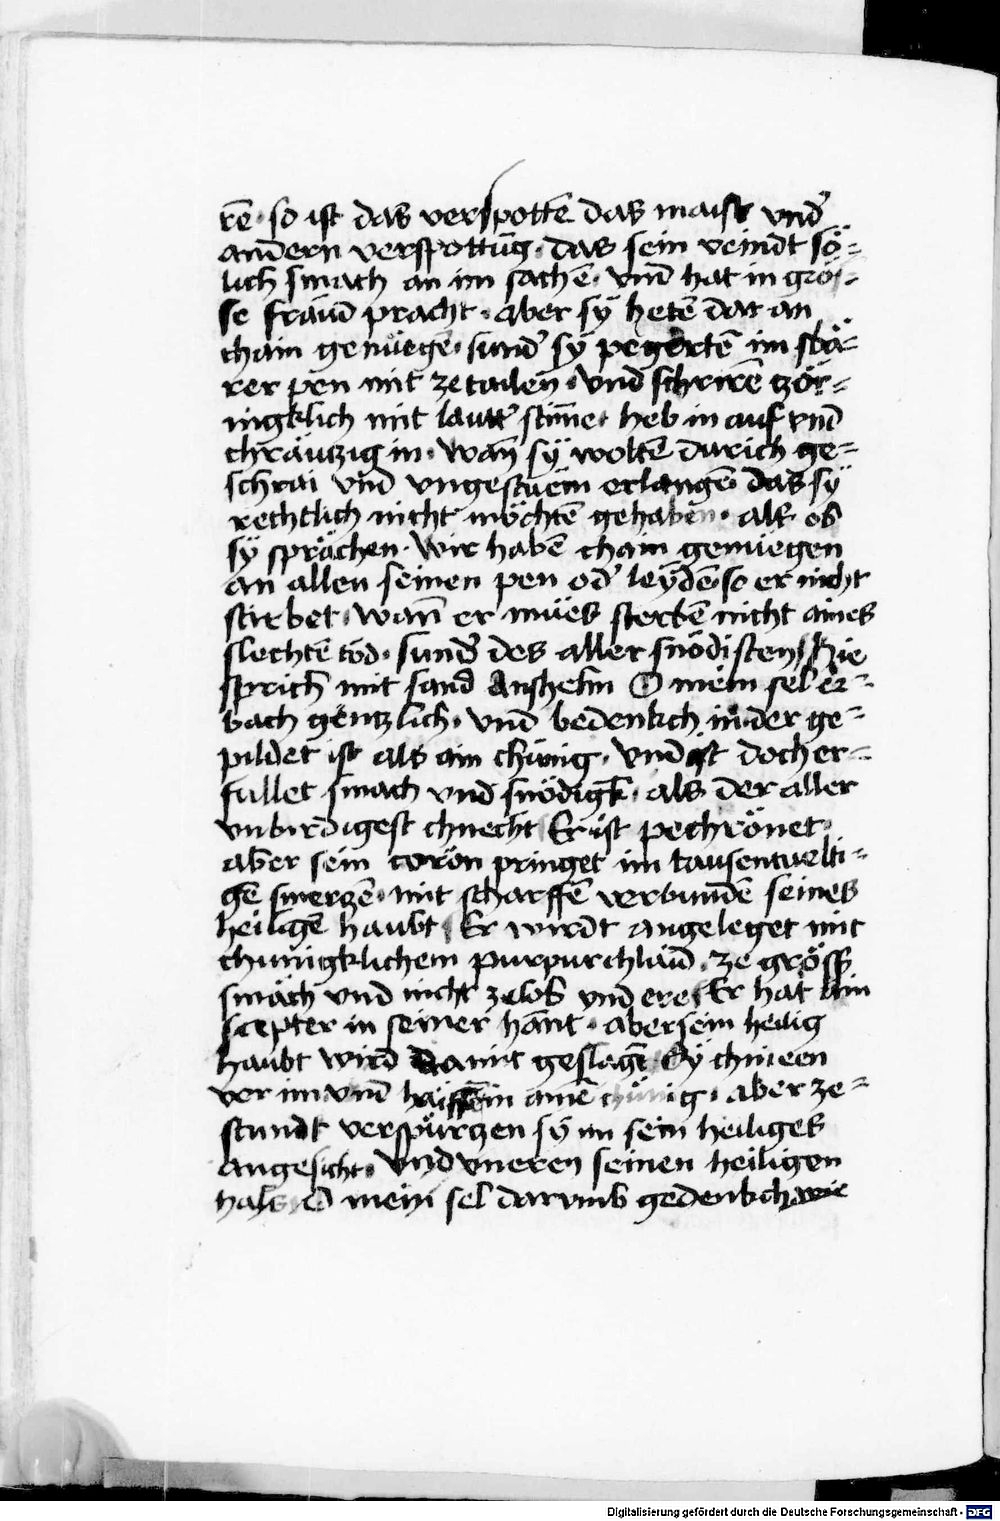 rē· so ist das verspottē das maist vnd̕
andern verspottūg· das sein veindt sö=
lich smach an im sachē· vnd hat in grös=
se fräud pracht· aber sÿ hetē dar an
chain genüegē· sund̕ sÿ pegertē im swä=
rer pen mit zetailen· vnd schrirē zör=
nigklich mit lautt̕ stim̄e· heb in auf vnd
chräutzig in· wan̄ sÿ woltē durich ge=
schrai vnd vngestüem erlangē das sÿ
rechtlich nicht möchtē gehaben· als ob
sÿ sprächen· wir habē chain genüegen
an allen seinen pen od̕ leÿdē so er nicht
stirbet· wan̄ er mües sterbē nicht aines
slechtē tod· sund̕ des aller snödisten Hie
sprich mit sand Anshelm O mein sel er=
bach gentzlich· vnd bedenkch in der ge=
pildet ist als ain chünig· vnd ist doch er=
füllet smach vnd snödigk̄· als der aller
vnbirdigest chnecht Er ist pechrönet·
aber sein corön pringet im tausentuelti=
gē smerczē· mit scharffē verbundē seines
heiligē haubt Er wirdt angeleget mit
chünigklichem purpurchläid· ze gröss
smäch vnd nicht ze lob vnd ere Er hat ain
scepter in seiner hant· aber sein heilig
haubt wird da mit geslagē Sÿ chnieen
vor im vnd haissen in ainē chünig· aber ze=
stundt verspürczen sÿ im sein heiliges
angesicht· vnd vneren seinen heiligen
hals O mein sel darumb gedenkch wie
Digitalisierung gefördert durch die Deutsche Forschungsgemeinschaft - DFG